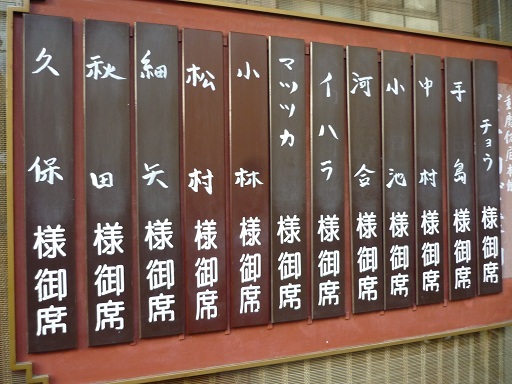 チョウ様御席
手島様御席
中村様御席
小池様御席
河合様御席
イハラ様御席
マツツカ様御席
小林様御席
松村様御席
細矢様御席
秋田様御席
久保様御席